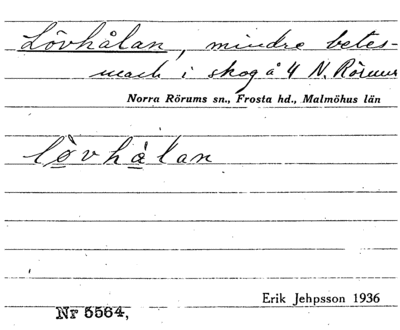 Lövhålan, mindre betes-
mark i skog å 4 N. Rörum
Norra Rörums sn., Frosta hd., Malmöhus län
lòvhålan
Erik Jehpsson 1936
Nr 5564,